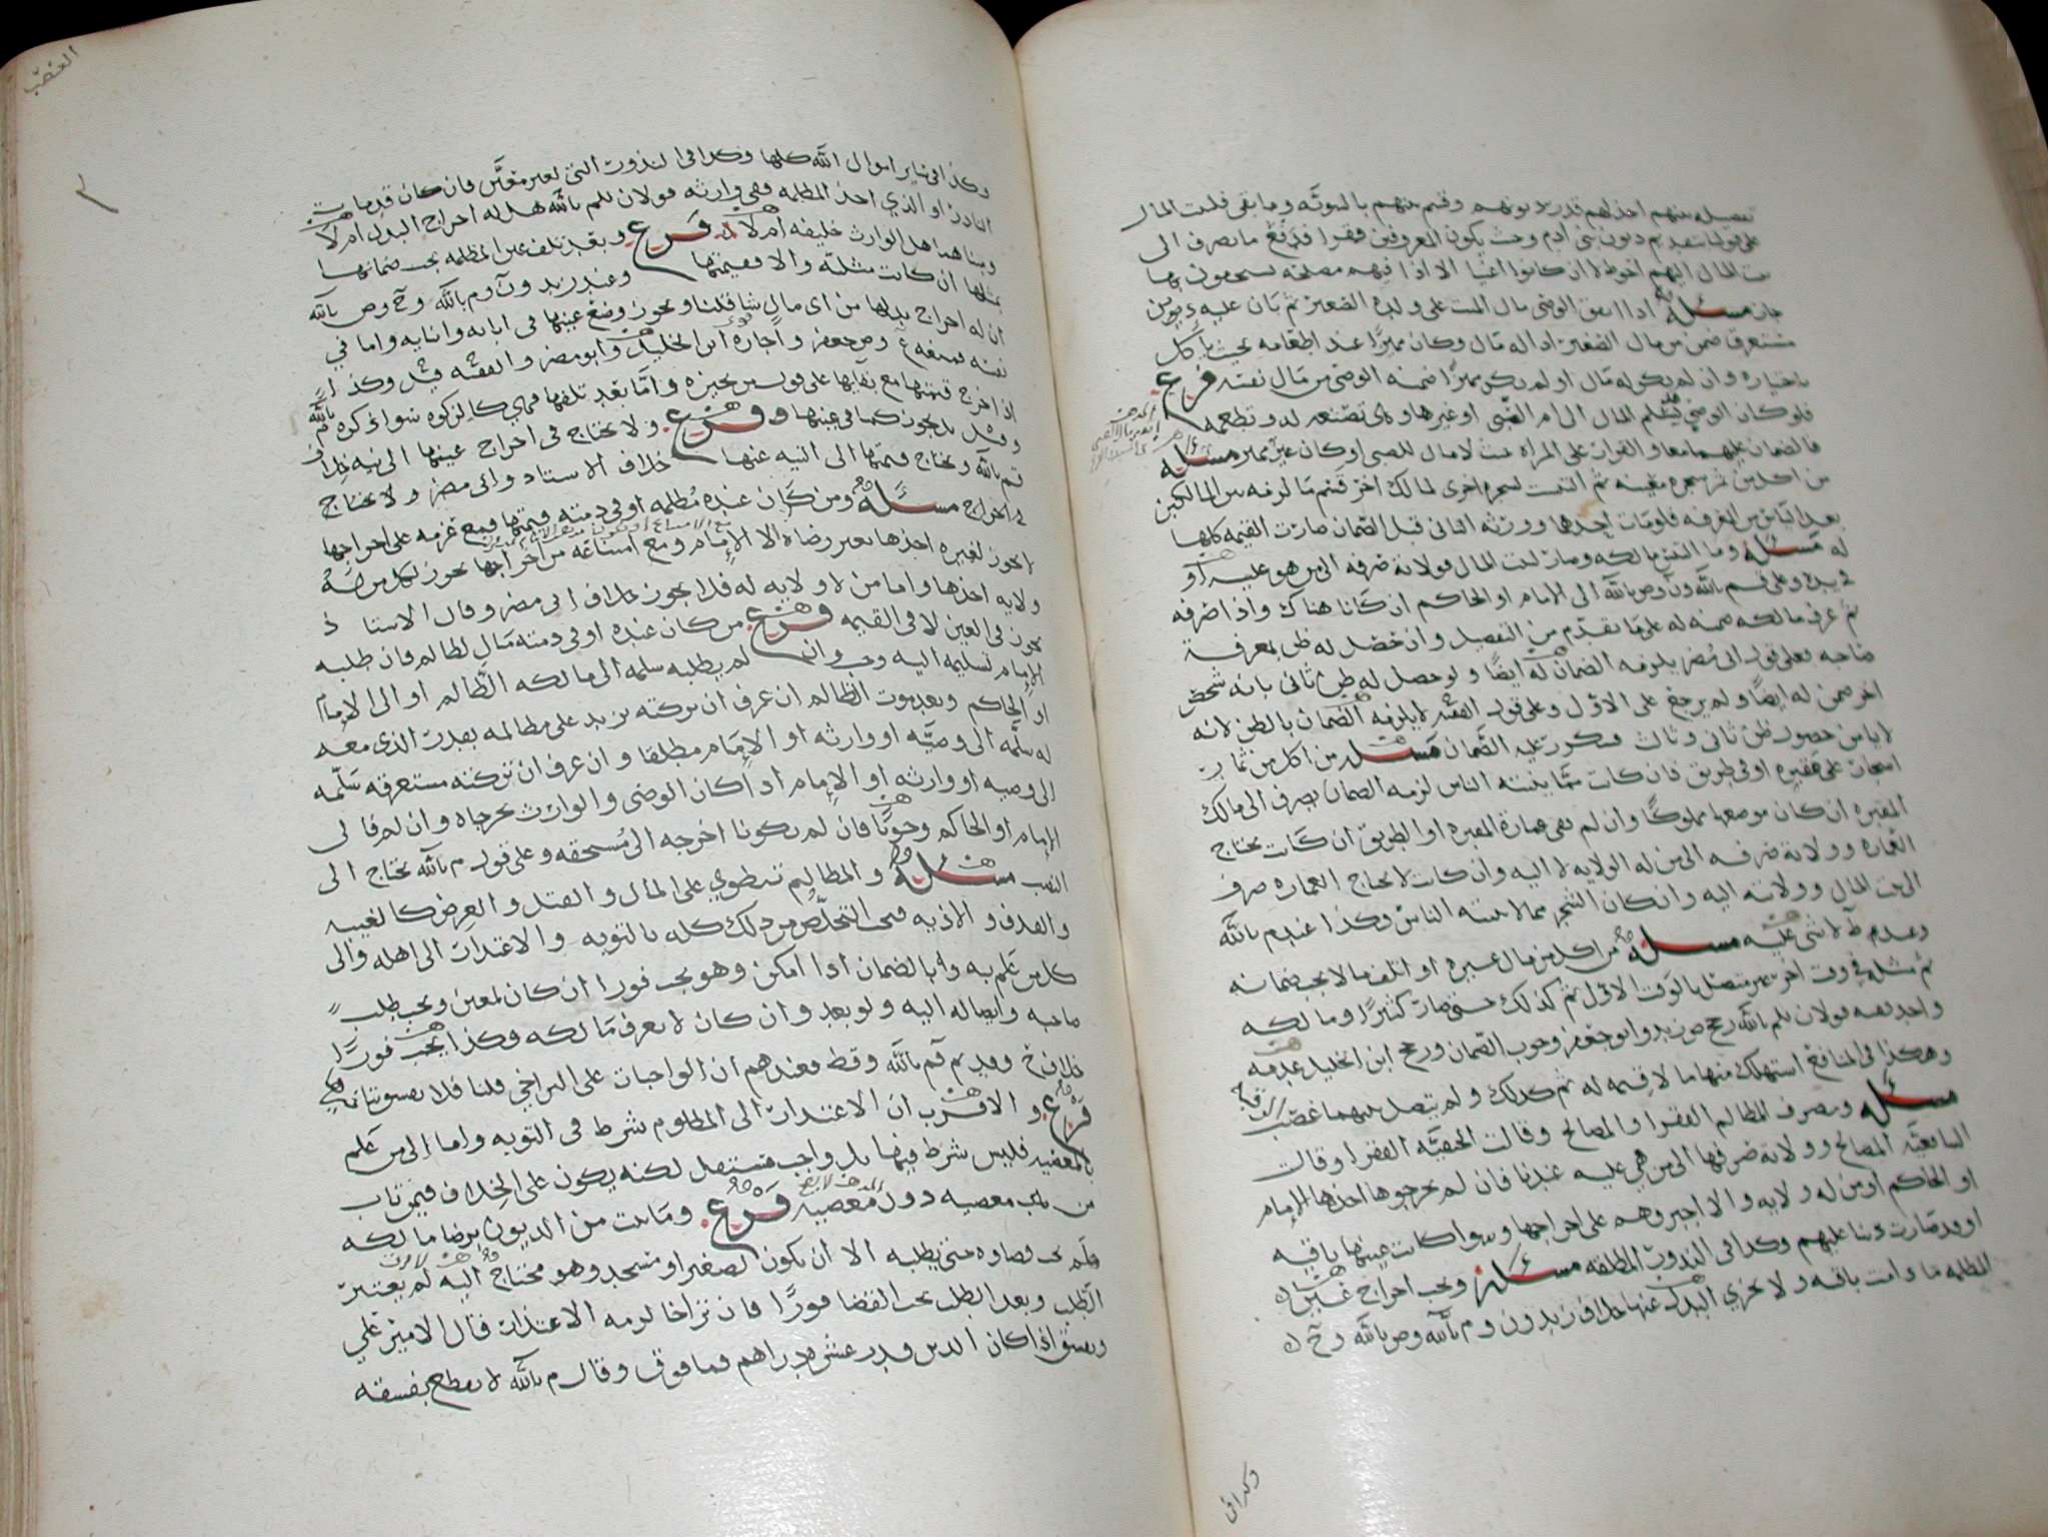 تفصيله منهم اخذ لهم قدر ديونهم وقسم بينهم بالسويه وما بقي فلبيت المال
على قولنا بتقديم ديون بني ادم وحيث يكون المعروفين فقرا فدفع ما يصرف الى
بيت المال اليهم احوط لا ان كانوا اغنيا الا اذا فيهم مصلحه يستحقون بها
جاز مسئله اذا انفق الوصي مال الميت على ولده الصغير ثم بان عليه ديون
مستغرقه ضمن من مال الصغير اذا له مال وكان مميزا عند اطعامه بحيث ياكل
باختياره وان لم يكن له مال او لم يكن مميزا ضمنه الوصي من مال نفسه فرع
فلو كان الوصي يسلم المال الى ام الصبي او غيرها وهي تصنعه له وتطعمه
فالضمان عليهما معا والقرار على المراه حيث لا مال للصبي او كان غير مميز مسئله
من اكل من ثمر شجره معينه ثم التبست بشجره اخرى لمالك اخر قسم ما لزمه بين المالكين
بعد الياس من المعرفه فلو مات احدهما وورثه الثاني قبل الضمان صارت القيمه كلها
له مسئله وما التبس مالكه وصار لبيت المال فولاية صرفه الى من هو عليه او
في يده وعلى قـم بالله ون وص بالله الى الامام او الحاكم ان كانا هناك واذا صرفه
ثم عرف مالكه ضمنه له على ما تقدم من التفصيل وان حصل له ظن بمعرفة
صاحبه فعلى قول ابي مضر يلزمه الضمان له ايضا ولو حصل له ظن ثاني بانه شخص
اخر ضمن له ايضا ولم يرجع على الاول وعلى قول الفقيه لا يلزمه الضمان بالظن لانه
لا يامن حصول ظن ثاني وثالث فيكرر عليه الضمان مسئله من اكل من ثمار
اشجار على مقبره او في طريق فان كانت مما ينبته الناس لزمه الضمان يصرف الى مالك
المقبره ان كان موضعها مملوكا وان لم ففي عمارة المقبره او الطريق ان كانت تحتاج
العماره وولاية صرفه الى من له الولايه لا اليه وان كانت لا تحتاج العماره صرف
الى بيت المال وولايته اليه وان كان الشجر مما لا ينبته الناس وكذا عند م بالله
وعندم ط لا شي عليه مسئله من اكل من مال غيره او اتلف ما لا يجب ضمانه
ثم مثله في وقت اخر غير متصل بالوقت الاول ثم كذلك حتى صار كثيرا ومالكه
واحد ففيه قولان للم بالله رجح ص زيد وابو جعفر وجوب الضمان ورجح ابن الخليل عدمه
وهكذا في المنافع استهلك منها ما لا قيمه له ثم كذلك ولم يتصل بينهما غصب
مسئله ومصرف المظالم الفقرا والمصالح وقالت الحنفيه الفقرا وقالت
الشافعيه المصالح وولاية صرفها الى من هي عليه عندنا فان لم يخرجوها اخذها الامام
او الحاكم او من له ولايه والا اجبروهم على اخراجها وسوا كانت عينها باقيه
او قد صارت دينا عليهم وكذا في النذور المطلقه مسئله ويجب اخراج عين
المظلمه ما دامت باقيه ولا يجزي البدل عنها خلاف زيد ون وم بالله وص بالله وح
وكذا في
الغصب
وكذا في ساير اموال الله كلها وكذا في النذور التي لغير معين فان كان قد مات
الناذر او الذي اخذ المظلمه ففي وارثه قولان للم بالله هل له اخراج البدل ام لا
ومبناهما هل الوارث خليفه ام لا فرع وبعد تلف عين المظلمه يجب ضمانها
بمثلها ان كانت مثليه والا فقيمتها وعند زيد ون وم بالله وح وص بالله
ان له اخراج بدلها من اي مال شا قلنا ويجوز وضع عينها في ابايه وابنايه واما في
نفسه فمنعه ع وص جعفر واجازه ابن الخليل وابو مضر والفقيه وكذا
اذا اخرج قيمتها مع بقايها على قول من يجيزه واما بعد تلفها فهي كالزكوه سواء ذكره م بالله
وقيل بل يجوز كما في عينها فرع ولا يحتاج في اخراج عينها الى نيه خلاف
قم بالله ويحتاج قيمتها الى النيه عنها خلاف الاستاد وابي مضر ولا يحتاج
في اخراج مسئله ومن كان عنده مظلمه او في ذمته قيمتها فمع عزمه على اخراجها
لا يجوز لغيره اخذها بغير رضاه الا الامام ومع امتناعه من اخراجها يجوز لكل من له
ولايه اخذها واما من لا ولايه له فلا يجوز خلاف ابي مضر وقال الاستاذ
يجوز في العين لا في القيمه فرع من كان عنده او في ذمته مال لظالم فان طلبه
الامام تسليمه اليه وجب وان لم يطلبه سلمه الى مالكه الظالم او الى الامام
او الحاكم وبعد موت الظالم ان عرف ان تركته تزيد على مظالمه بقدر الذي معه
له سلمه الى وصيه او وارثه او الامام مطلقا وان عرف ان تركته مستغرقه سلمه
الى وصيه او وارثه او الامام اذا كان الوصي والوارث يخرجاه وان لم فالى
الامام او الحاكم وجوبا فان لم يكونا اخرجه الى مستحقه وعلى قول م بالله يحتاج الى
النصب مسئله والمظالم تنطوي على المال والقتل والعرض كالغيبه
والقذف والاذيه فيجب التخلص من ذلك كله بالتوبه والاعتذار الى اهله والى
كل من علم به وبالضمان اذا امكن وهو يجب فورا ان كان لمعين ويجب طلب
صاحبه وايصاله اليه ولو بعد وان كان لا يعرف مالكه وكذا يجب فورا
خلاف وقديم قم بالله وقط فعندهم ان الواجبات على التراخي قلنا فلا يفسق بتاخيره
فرع والاقرب ان الاعتذار الى المظلوم شرط في التوبه واما الى من علم
بالمعصيه فليس شرط فيها بل واجب مستقل لكنه يكون على الخلاف فيمن تاب
من معصيه دون معصيه فرع وما ثبت من الديون برضا مالكه
فلم يجب قضاوه حتى يطلبه الا ان يكون لصغير او مسجد وهو محتاج اليه لم يعتبر
الطلب وبعد الطلب يجب القضا فورا فان تراخا لزمه الاعتذار قال الامير علي
ويفسق اذا كان الدين قدر عشره دراهم فما فوق وقال م بالله لا يقطع بفسقه